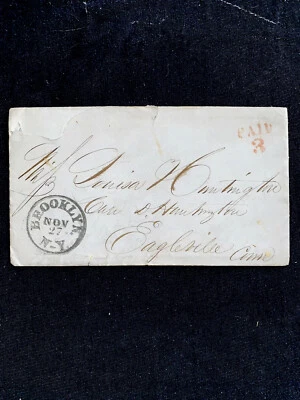 PAID
3
Miss Louisa Huntington
Care D. Huntington
Eagleville
Conn
BROOKLYN
NOV
27
N-Y